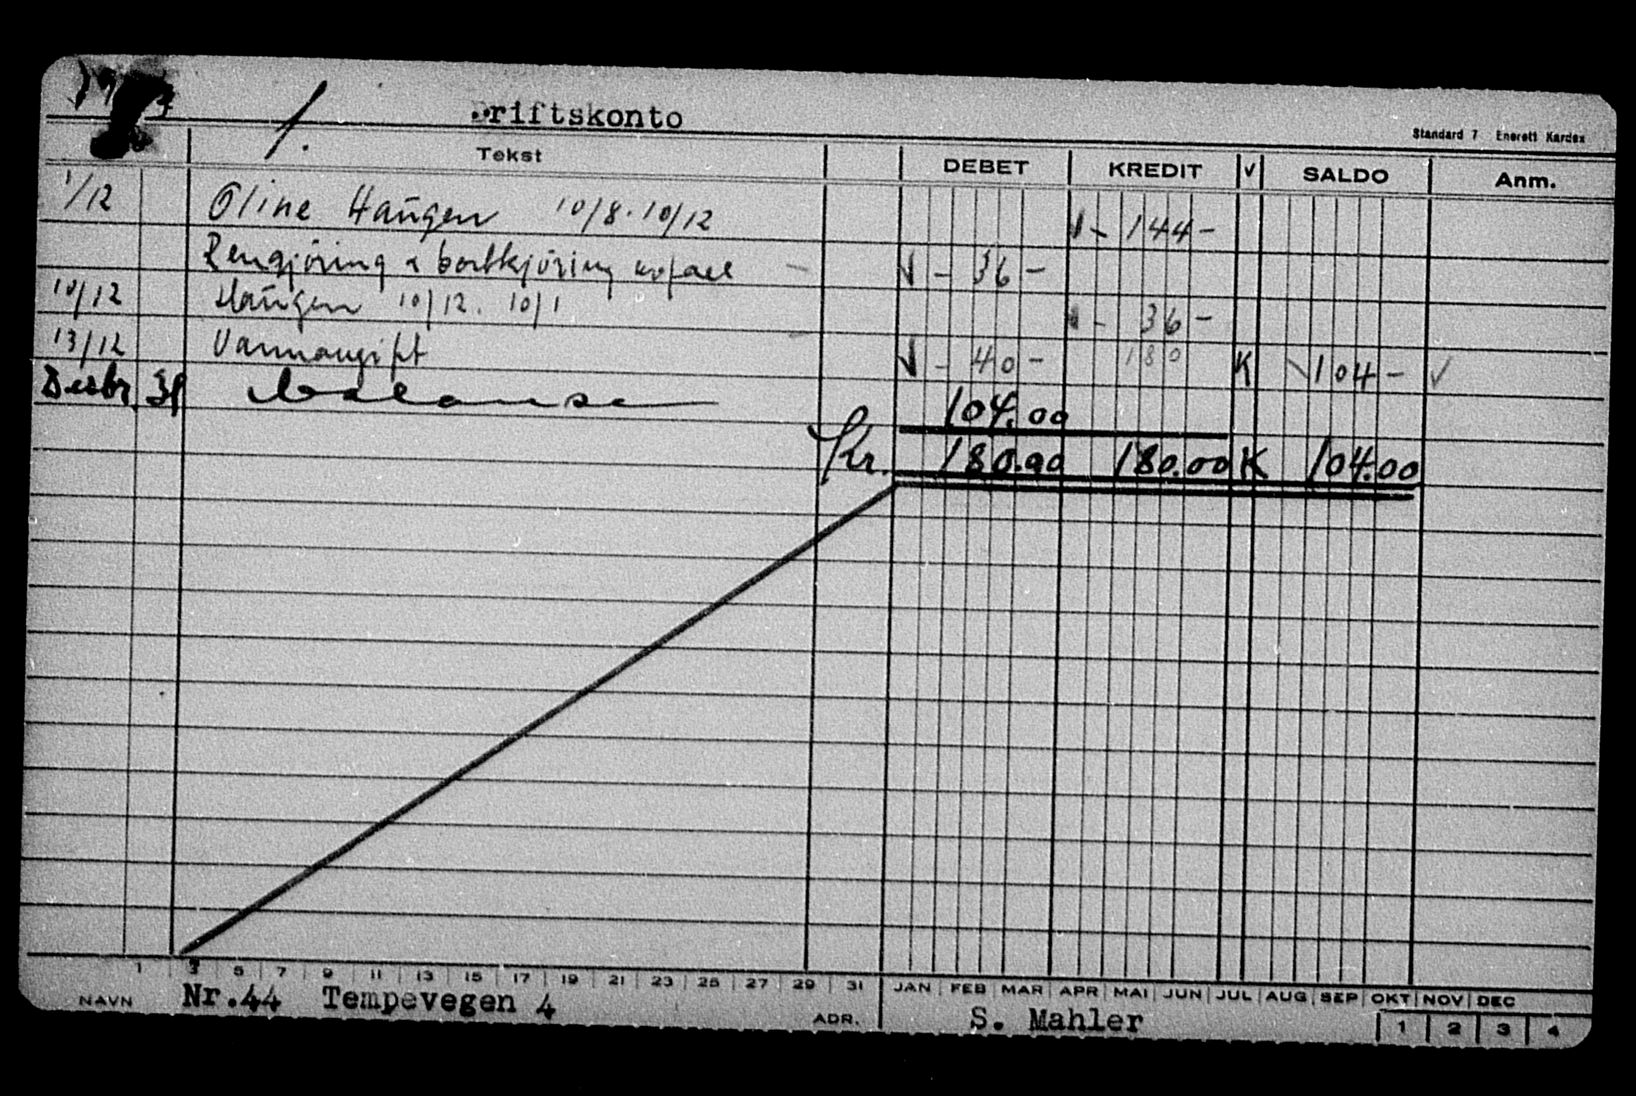 1.
Driftskonto
Standard 7 Enerett Kardex
Tekst DEBET KREDIT √ SALDO Anm.
1/12 Oline Haugen 10/8-10/12 - 144 -
Rengjøring & bortkjøring avfall - 36 -
10/12 Haugen 10/12. 10/1 - 36 -
13/12 Vannavgift - 40 - 180 K 104 - √
Desbr. 31 balanse 104.00
Kr. 180.00 180.00 K 104.00
1 3 5 7 9 11 13 15 17 19 21 23 25 27 29 31 JAN FEB MAR APR MAI JUN JUL AUG SEP OKT NOV DEC
NAVN Nr.44 Tempevegen 4 ADR. S. Mahler 1 2 3 4